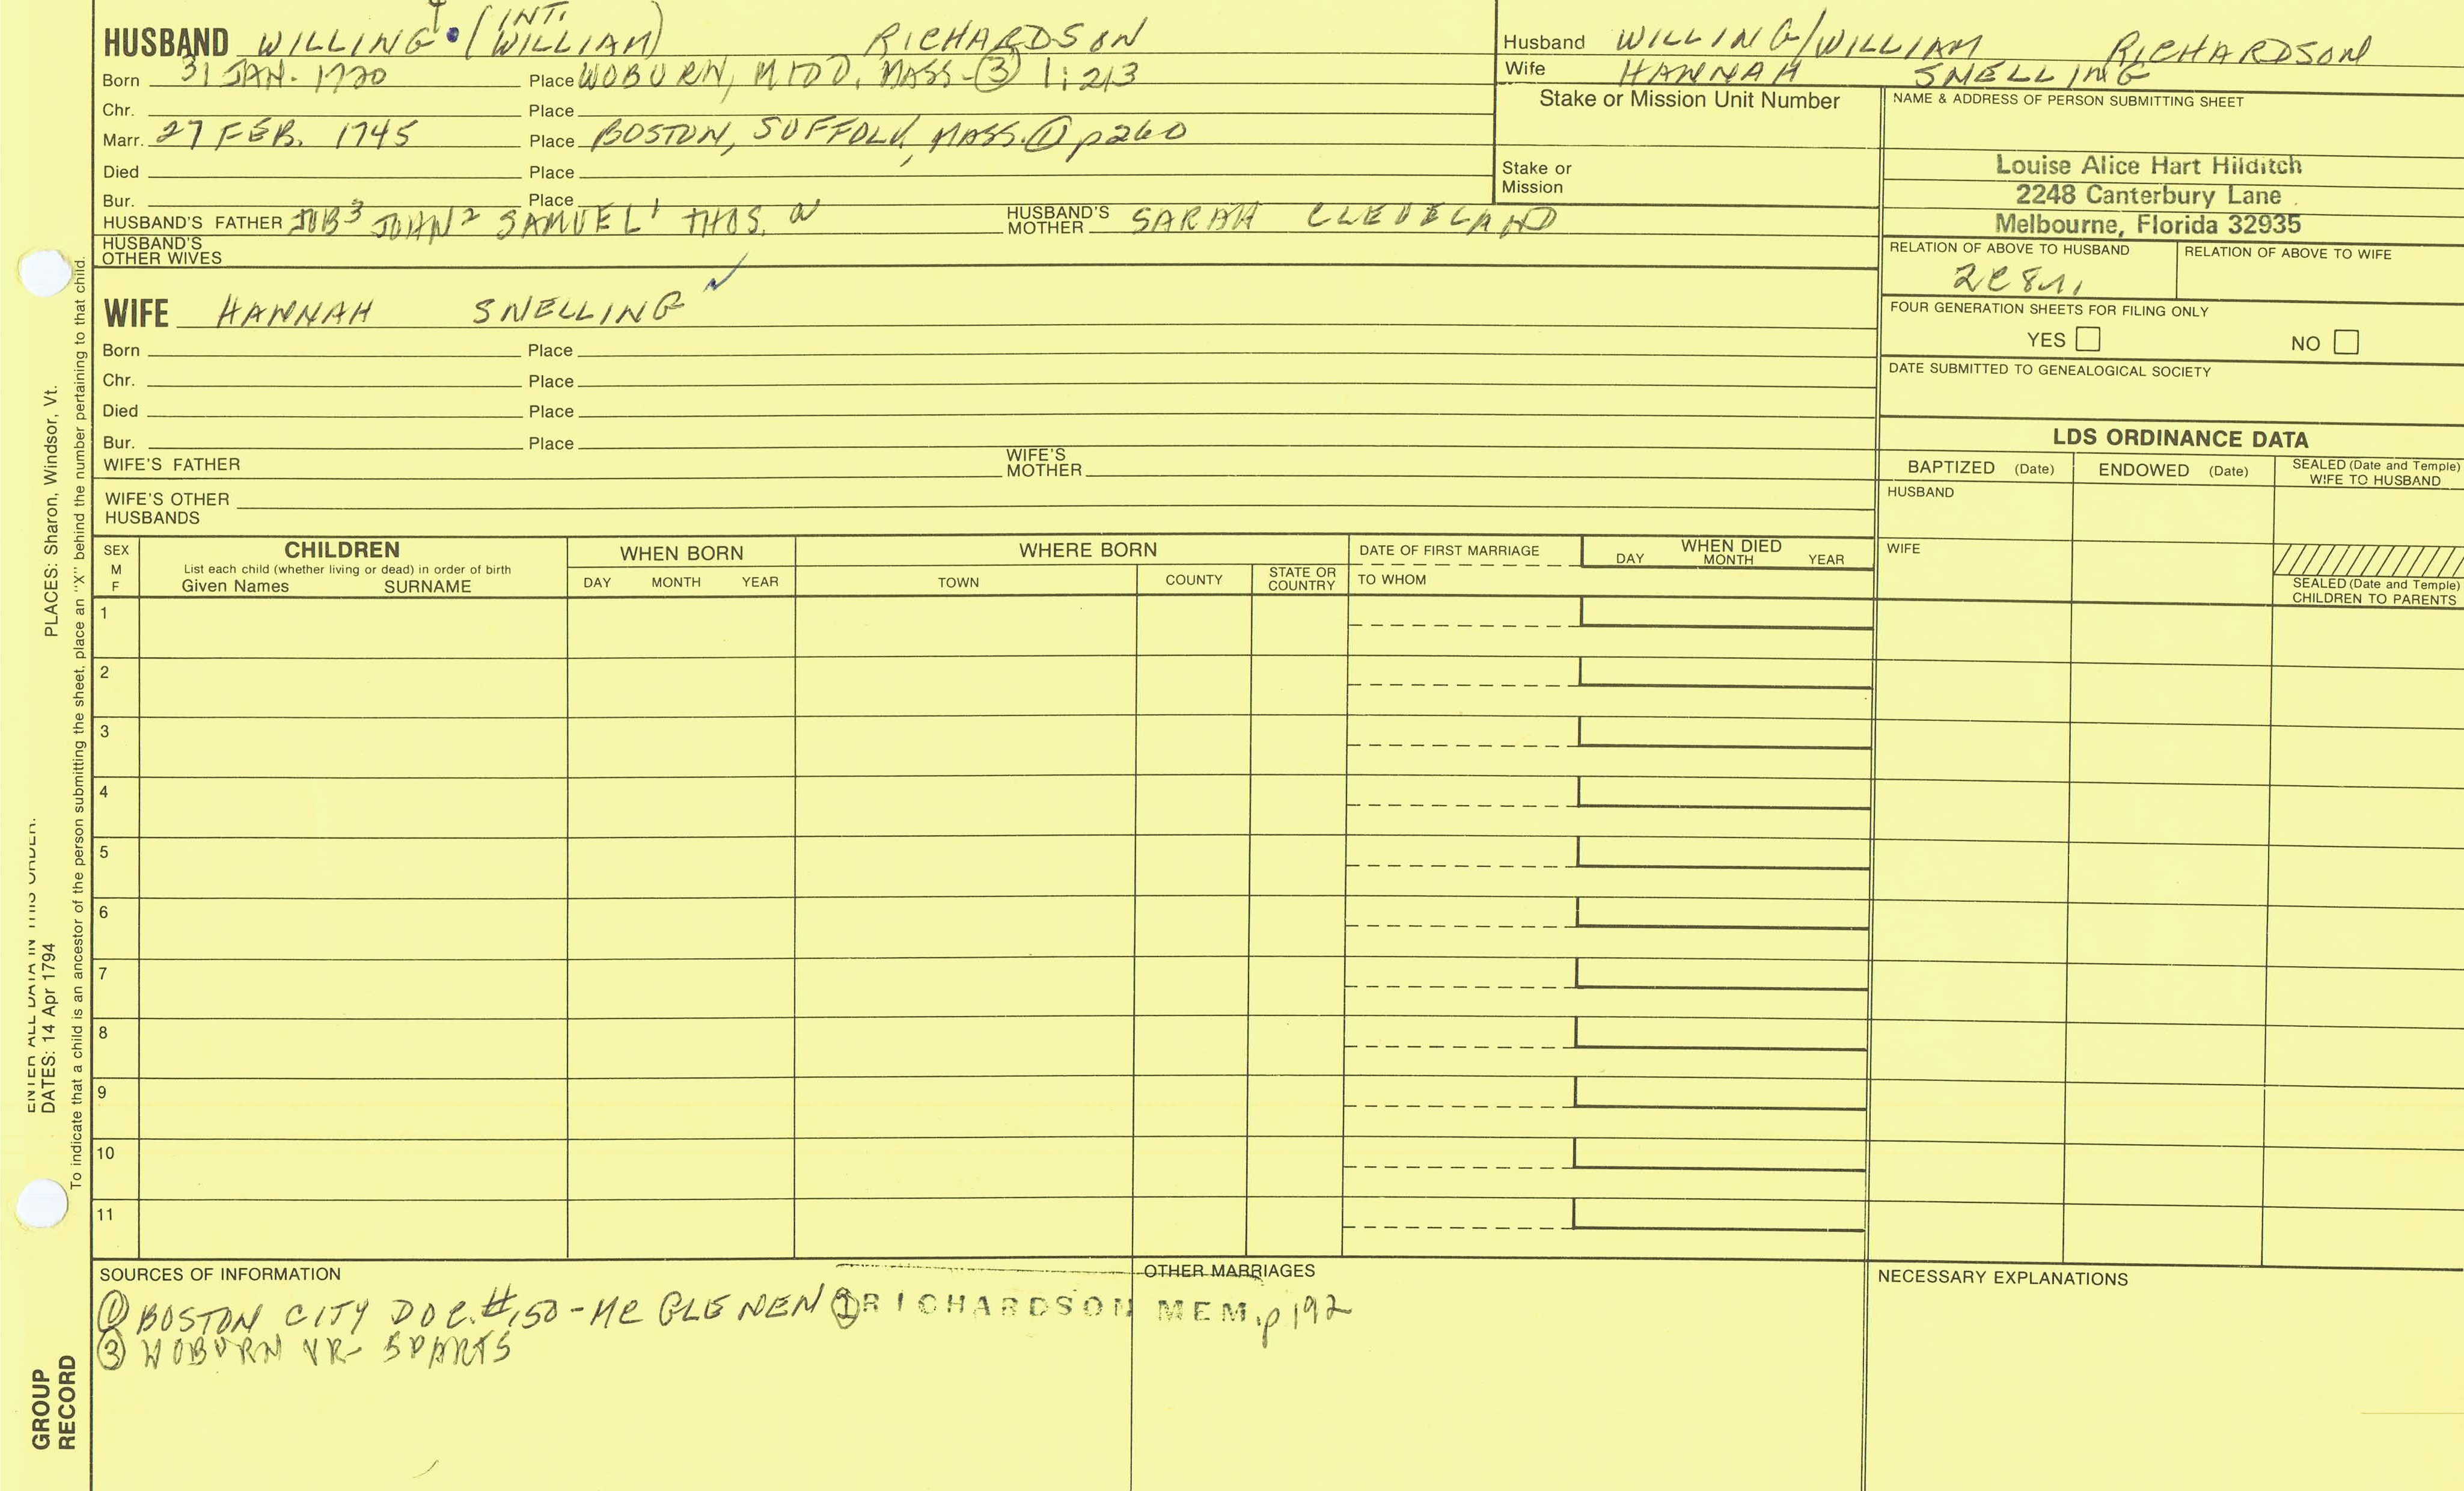 HUSBAND WILLING (INT. WILLIAM) RICHARDSON
Born 31 JAN. 1720 Place WOBURN, MIDD, MASS-③ 1:213
Chr. Place
Marr. 27 FEB. 1745 Place BOSTON, SUFFOLK, MASS. ① p260
Died Place
Bur. Place
HUSBAND'S FATHER JOB³ JOHN² SAMUEL¹ THOS.
HUSBAND'S MOTHER SARAH CLEVELAND
HUSBAND'S OTHER WIVES
WIFE HANNAH SNELLING ✓
Born Place
Chr. Place
Died Place
Bur. Place
WIFE'S FATHER
WIFE'S MOTHER
WIFE'S OTHER HUSBANDS
Husband WILLING/WILLIAM RICHARDSON
Wife HANNAH SNELLING
Stake or Mission Unit Number
Stake or Mission
NAME & ADDRESS OF PERSON SUBMITTING SHEET
Louise Alice Hart Hilditch
2248 Canterbury Lane
Melbourne, Florida 32935
RELATION OF ABOVE TO HUSBAND
RELATION OF ABOVE TO WIFE
FOUR GENERATION SHEETS FOR FILING ONLY
YES NO
DATE SUBMITTED TO GENEALOGICAL SOCIETY
LDS ORDINANCE DATA
BAPTIZED (Date) ENDOWED (Date) SEALED (Date and Temple) WIFE TO HUSBAND
HUSBAND
WIFE
SEALED (Date and Temple) CHILDREN TO PARENTS
SEX M F
CHILDREN
List each child (whether living or dead) in order of birth
Given Names SURNAME
WHEN BORN
DAY MONTH YEAR
WHERE BORN
TOWN COUNTY STATE OR COUNTRY
DATE OF FIRST MARRIAGE
TO WHOM
WHEN DIED
DAY MONTH YEAR
1
2
3
4
5
6
7
8
9
10
11
SOURCES OF INFORMATION
① BOSTON CITY DOC. #150 - MC GLENEN ① RICHARDSON MEM. p192
③ WOBURN VR- 5 PARTS
OTHER MARRIAGES
NECESSARY EXPLANATIONS
ENTER ALL DATA IN THIS ORDER:
DATES: 14 Apr 1794 PLACES: Sharon, Windsor, Vt.
To indicate that a child is an ancestor of the person submitting the sheet, place an "X" behind the number pertaining to that child.
GROUP
RECORD